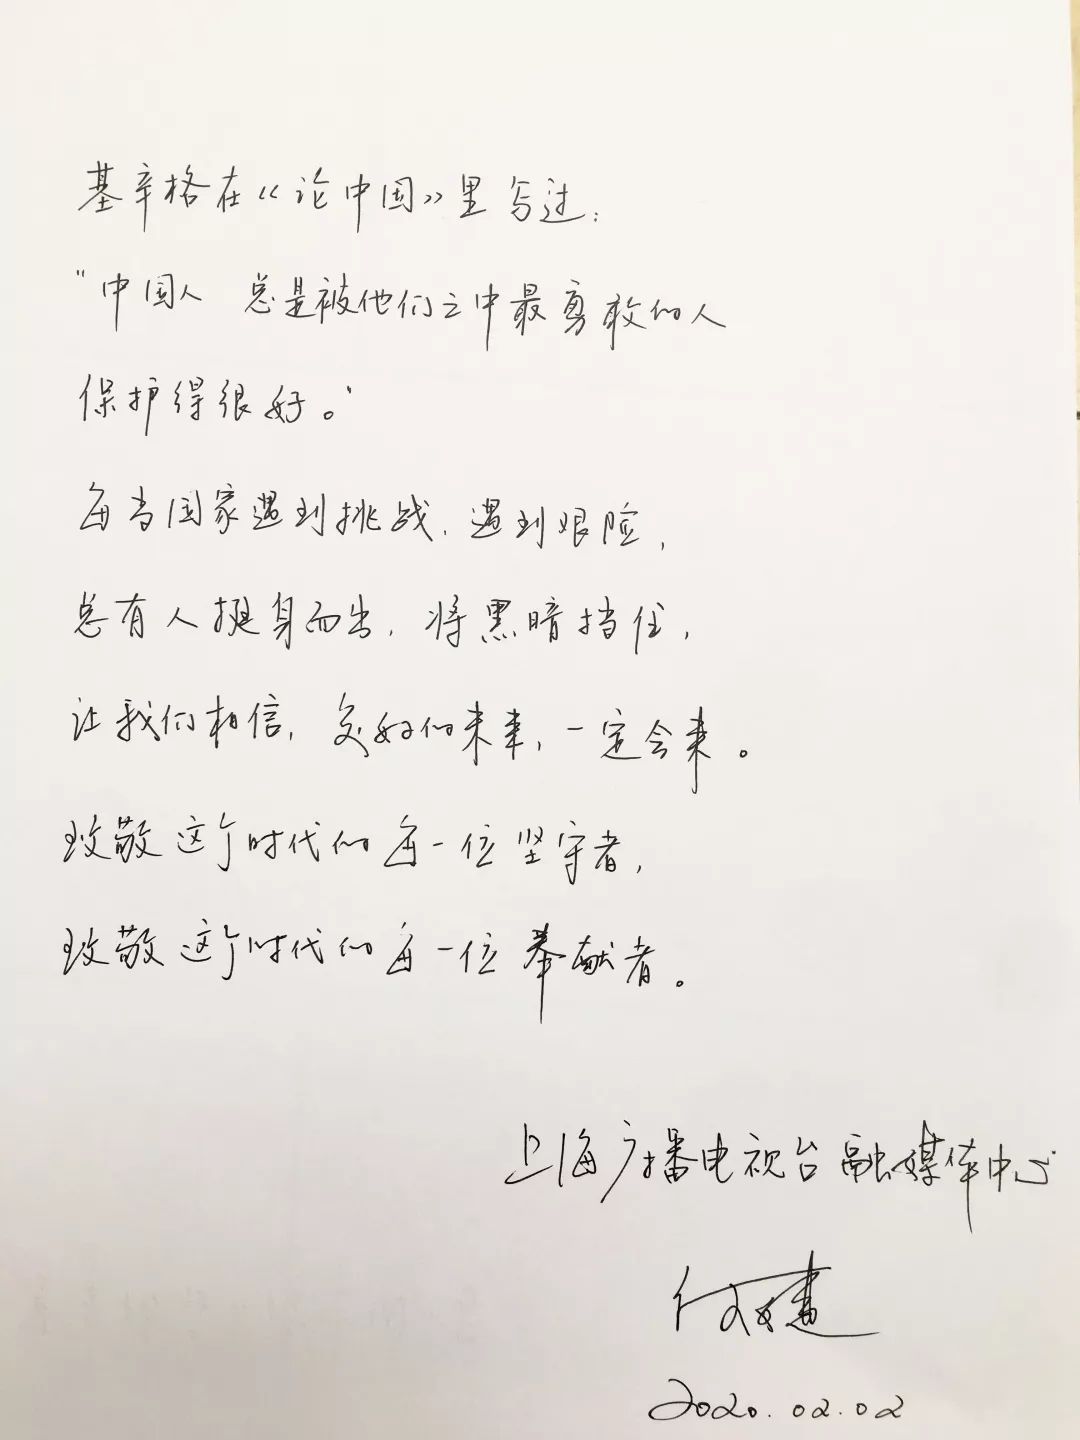 基辛格在《论中国》里写过：
"中国人 总是被他们之中最勇敢的人
保护得很好。"
每当国家遇到挑战，遇到艰险，
总有人挺身而出，将黑暗挡住，
让我们相信，美好的未来，一定会来。
致敬这个时代的每一位坚守者，
致敬这个时代的每一位奉献者。
上海广播电视台融媒体中心
2020.02.02